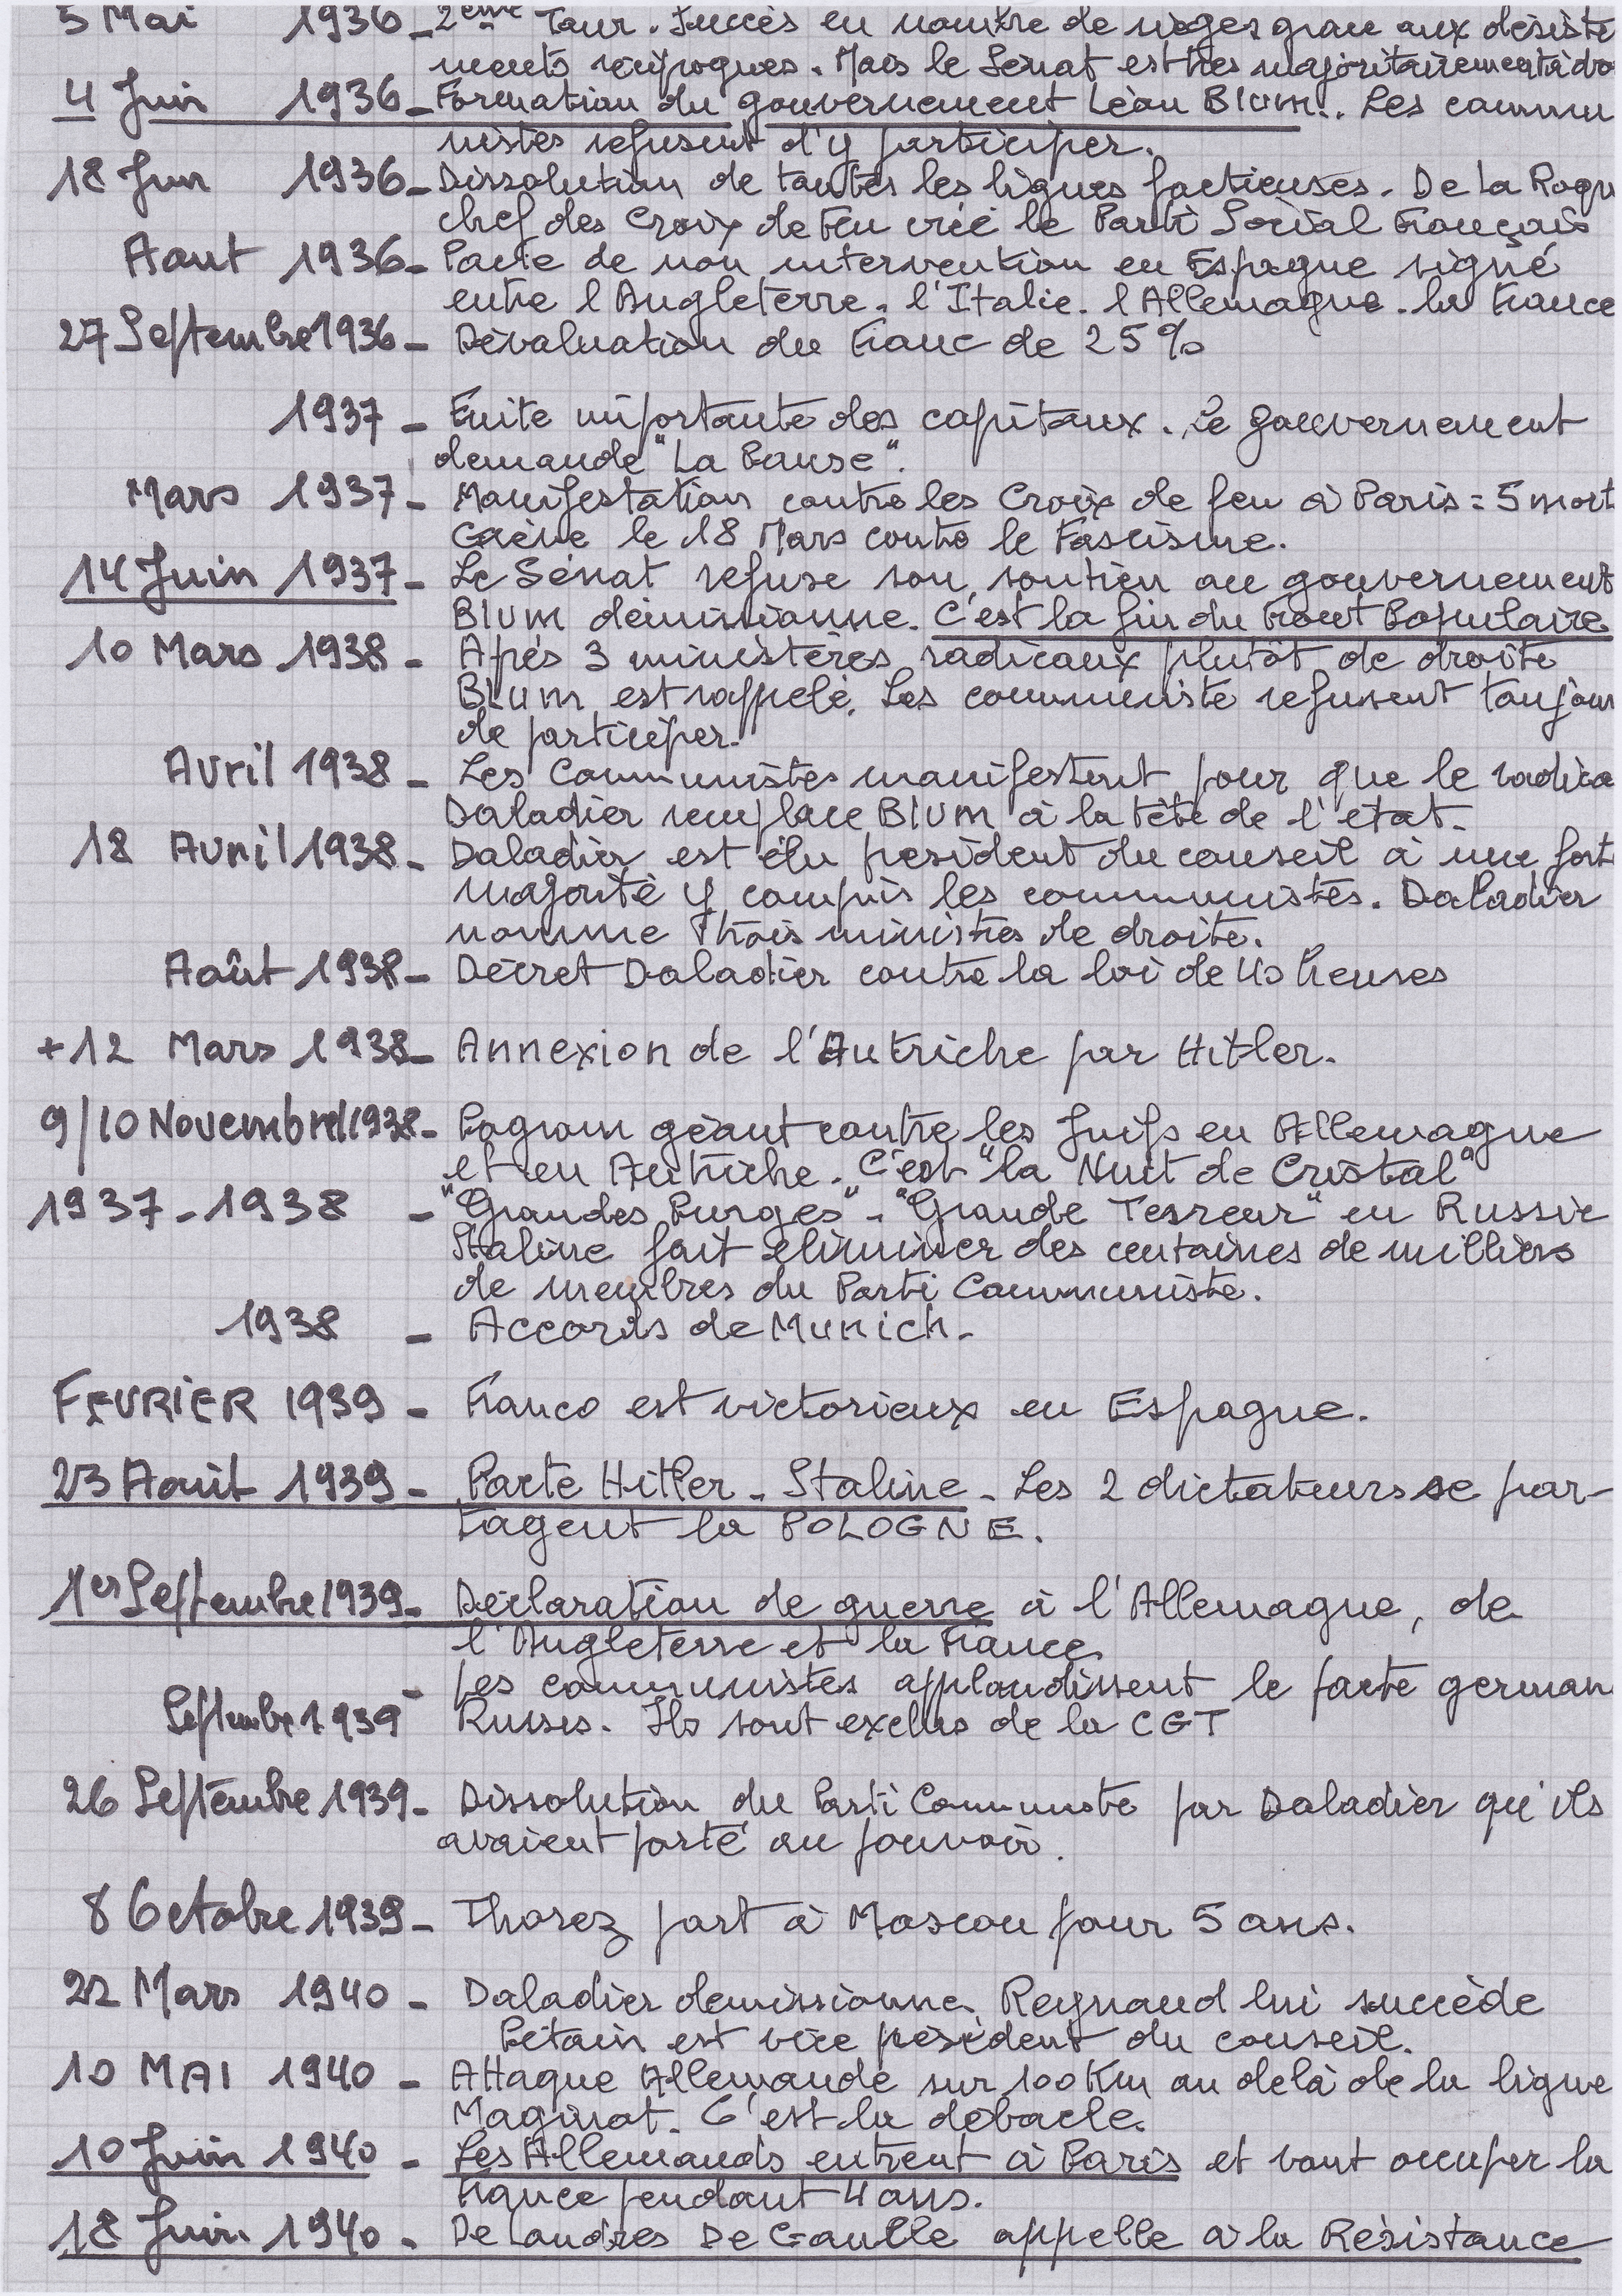 5 Mai 1936 - 2ème Tour. Succès en nombre de sièges grace aux désiste
ments réciproques. Mais le Sénat est très majoritairement à dro
4 Juin 1936 - Formation du gouvernement Léon Blum. Les commu
nistes refusent d'y participer.
18 Juin 1936 - Dissolution de toutes les ligues factieuses. De La Roqu
chef des Croix de Feu crée le Parti Social Français
Aout 1936 - Pacte de non intervention en Espagne signé
entre l'Angleterre. l'Italie. l'Allemagne. la France
27 Septembre 1936 - Dévaluation du Franc de 25%
1937 - Fuite importante des capitaux. Le gouvernement
demande "La Pause".
Mars 1937 - Manifestation contre les Croix de feu à Paris = 5 mort
Grève le 18 Mars contre le Fascisme.
14 Juin 1937 - Le Sénat refuse son soutien au gouvernement
Blum démissionne. C'est la fin du Front Populaire
10 Mars 1938 - Aprés 3 ministères radicaux plutôt de droite
Blum est rappelé. Les communiste refusent toujour
de participer.
Avril 1938 - Les Communistes manifestent pour que le radica
Daladier remplace Blum à la tête de l'état.
18 Avril 1938 - Daladier est élu président du conseil à une fort
majorité y compris les communistes. Daladier
nomme trois ministres de droite.
Août 1938 - Décret Daladier contre la loi de 40 heures
+12 Mars 1938 - Annexion de l'Autriche par Hitler.
9/10 Novembre 1938 - Pogrom géant contre les Juifs en Allemagne
et en Autriche. C'est "la Nuit de Cristal"
1937 - 1938 - "Grandes Purges" - "Grande Terreur" en Russie
Staline fait éliminer des centaines de milliers
de membres du Parti Communiste.
1938 - Accords de Munich.
FEVRIER 1939 - Franco est victorieux en Espagne.
23 Août 1939 - Pacte Hitler - Staline - Les 2 dictateurs se par-
tagent la POLOGNE.
1er Septembre 1939 - Déclaration de guerre à l'Allemagne, de
l'Angleterre et la France
Septembre 1939 - Les communistes applaudissent le pacte german
Russes. Ils sont exclus de la CGT
26 Septembre 1939 - Dissolution du Parti Communiste par Daladier qu'ils
avaient porté au pouvoir.
8 Octobre 1939 - Thorez part à Moscou pour 5 ans.
22 Mars 1940 - Daladier demissionne. Reynaud lui succède
Pétain est vice président du conseil.
10 MAI 1940 - Attaque Allemande sur 100 Km au delà de la ligne
Maginot. C'est la débacle.
10 Juin 1940 - Les Allemands entrent à Paris et vont occuper la
France pendant 4 ans.
18 Juin 1940 - De Londres De Gaulle appelle à la Résistance